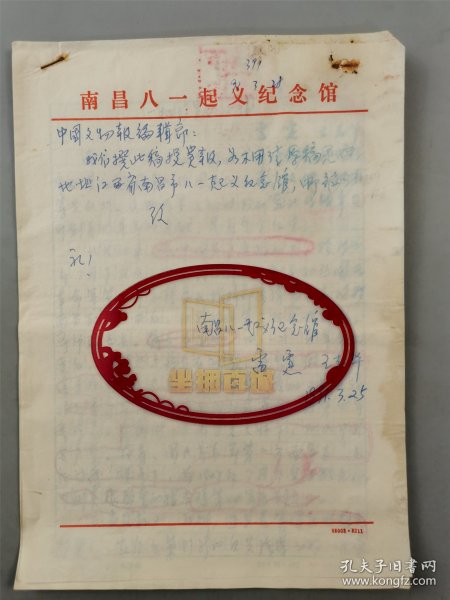 391
3.28
南昌八一起义纪念馆
中国文物报编辑部：
我们撰此稿投贵报，如不用请将稿退回
地址江西省南昌市八一起义纪念馆
致
礼！
南昌八一起义纪念馆
雷霆 王
3.25
坐拥百城
孔夫子旧书网
www.kongfz.com